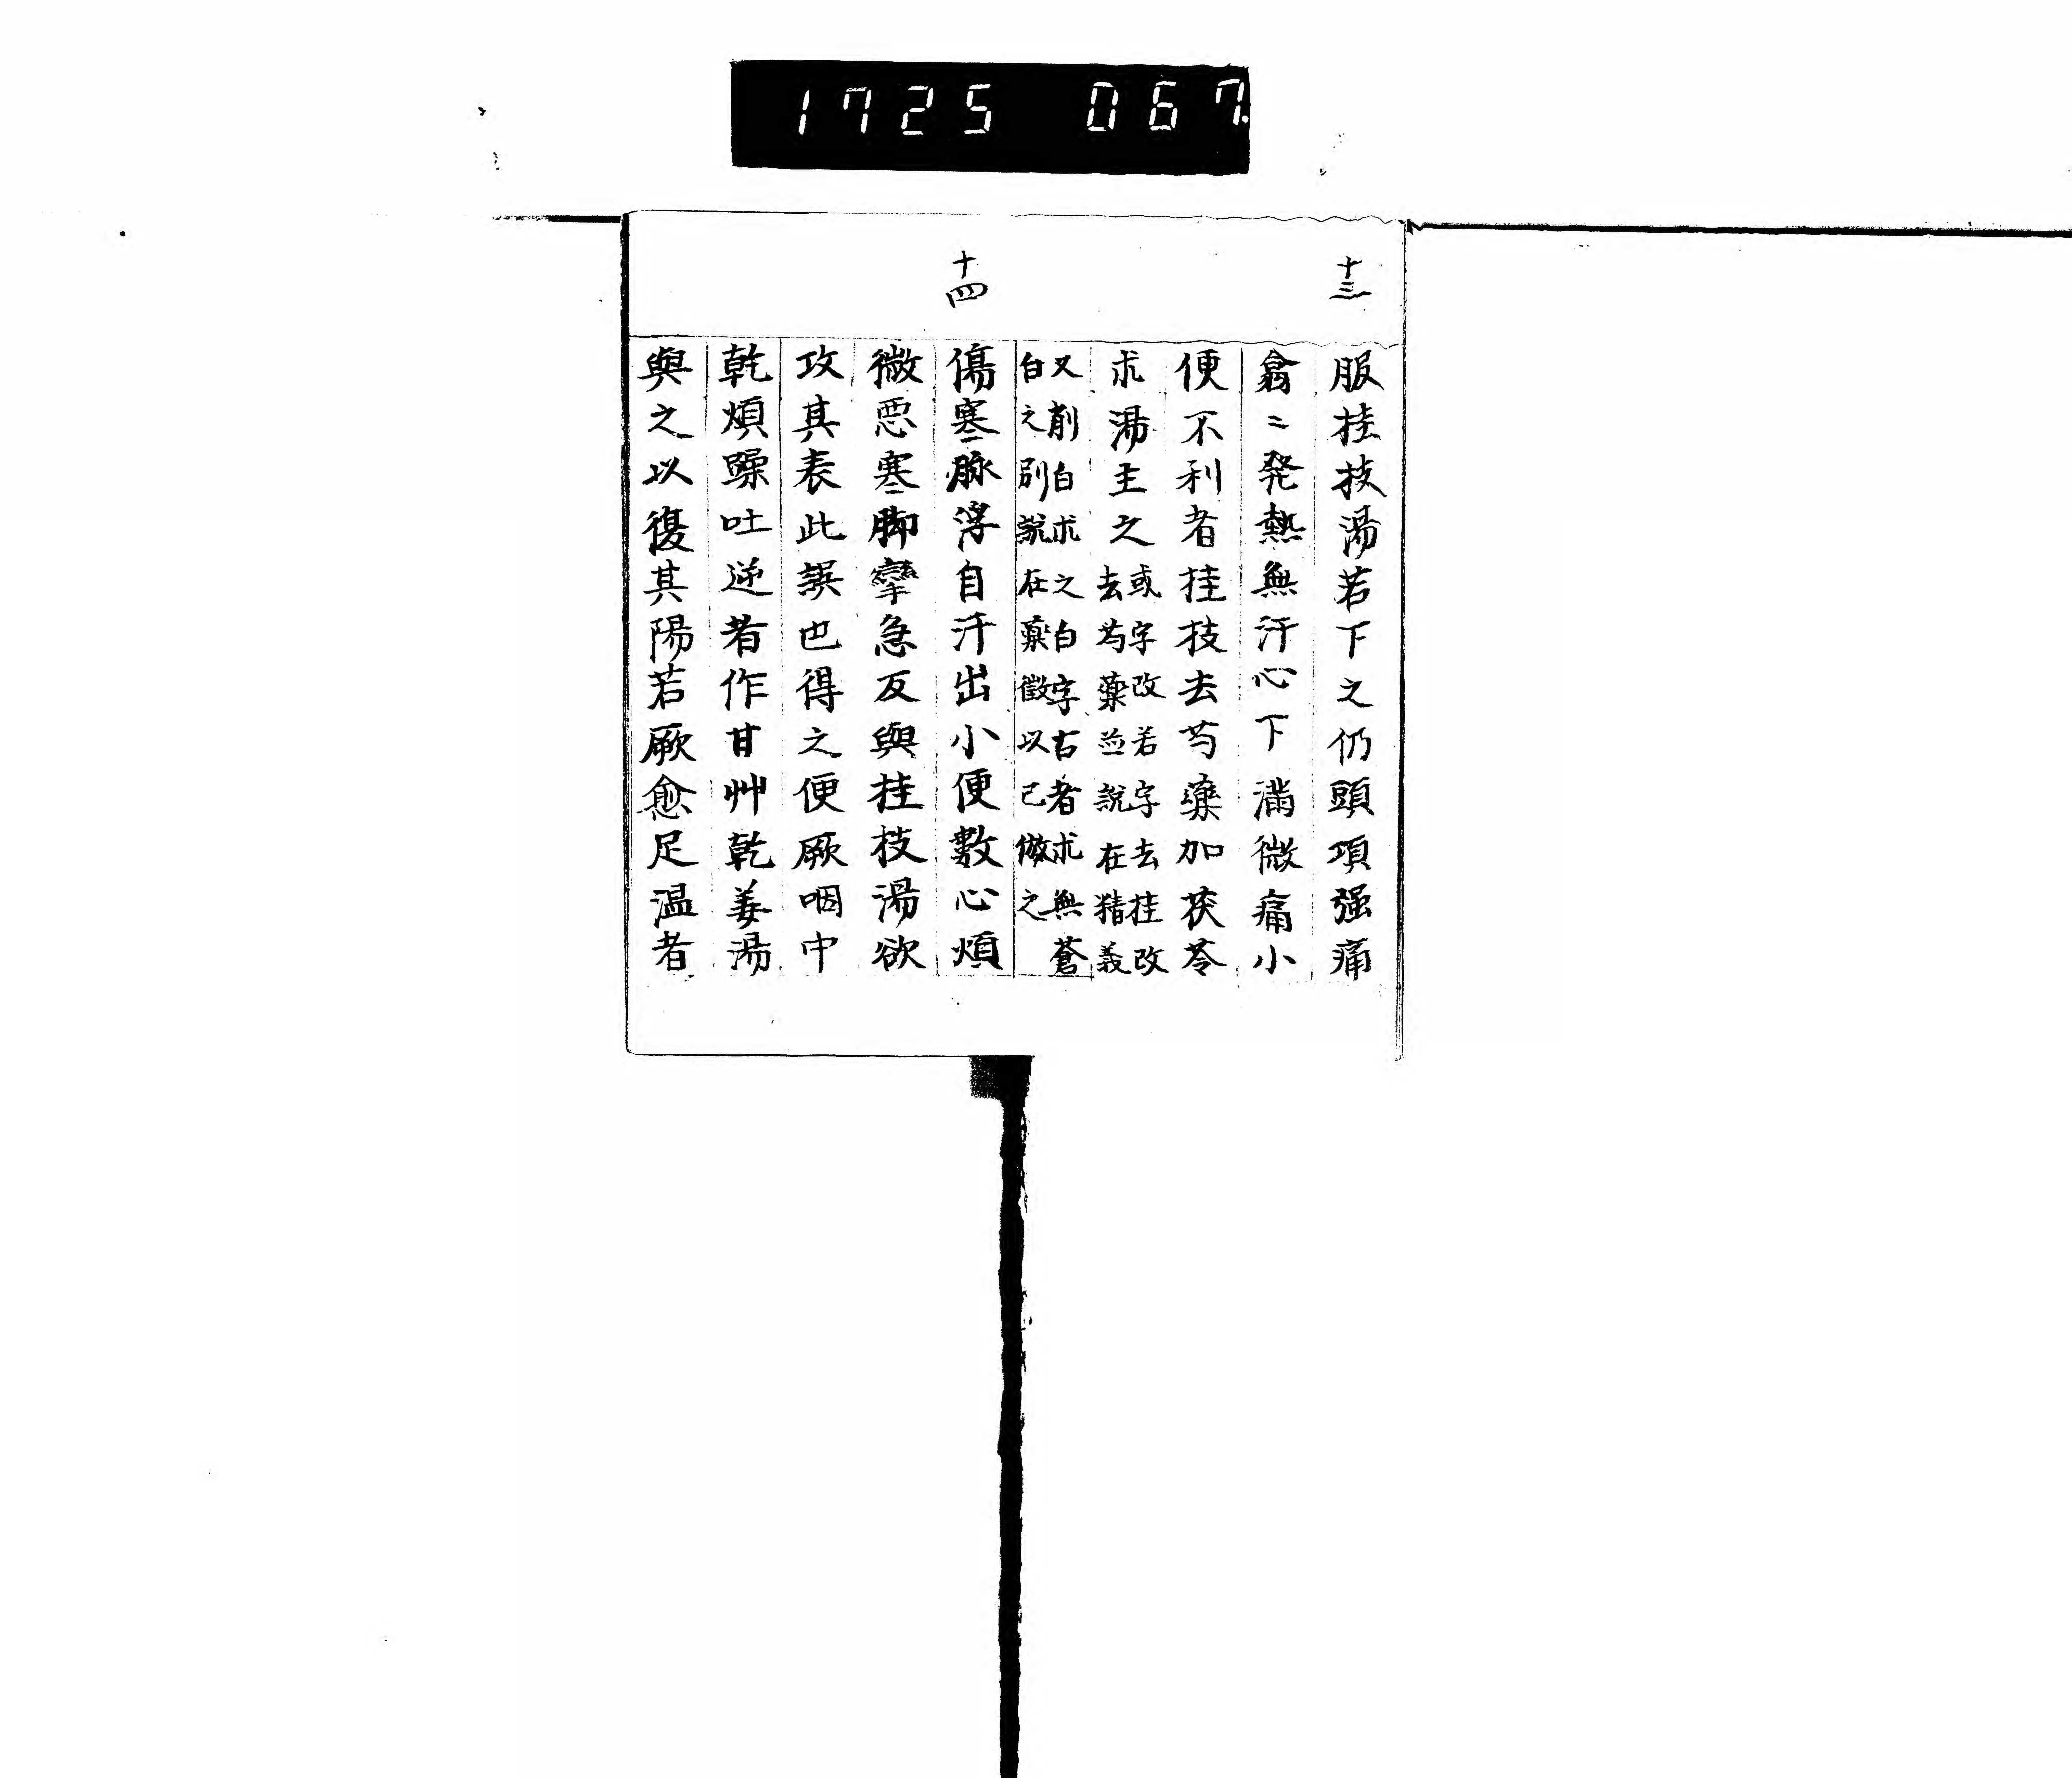 1725 067.
十三
服桂技湯若下之仍頭項强痛
翕〻発熱無汗心下滿微痛小
便不利者桂技去芍藥加茯苓
朮湯主之
或字改若字去桂改
去芍藥並説在精義
又削白朮之白字古者朮無蒼
白之別説在藥徴以已倣之
十四
傷寒脉浮自汗出小便數心煩
微悪寒脚攣急反與桂枝湯欲
攻其表此誤也得之便厥咽中
乾煩躁吐逆者作甘艸乾姜湯
與之以復其陽若厥愈足温者